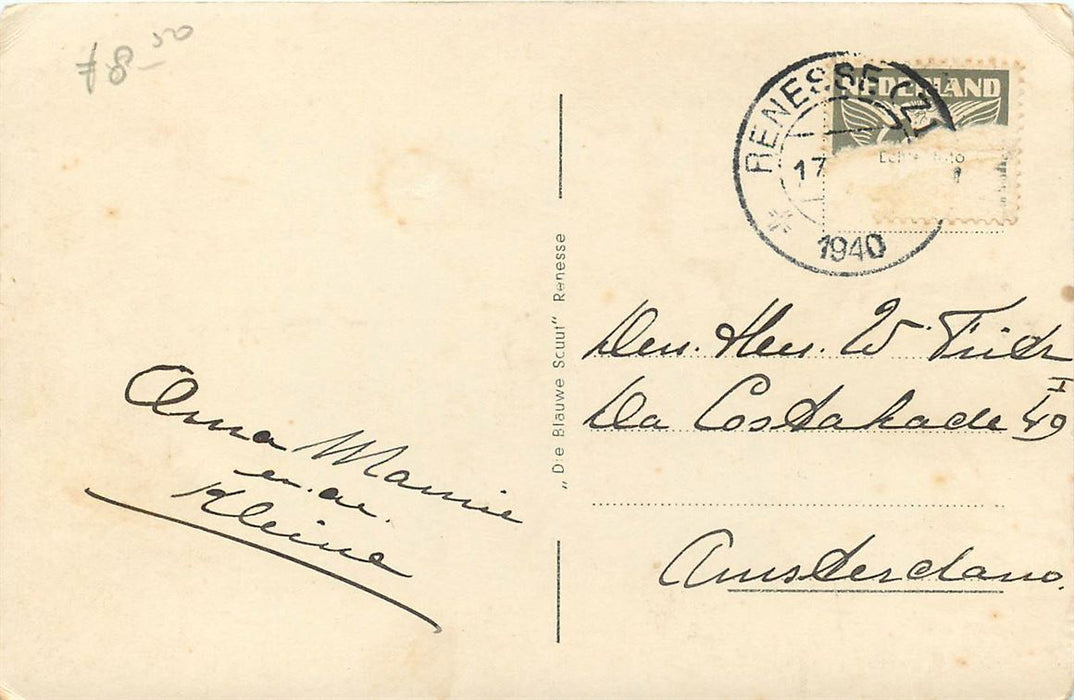 ƒ 8-50
NEDERLAND
RENESSE (Z)
17
1940
„Die Blauwe Scuut" Renesse
Den. Heer. W.
Da Costakade 49 I
Amsterdam.
Anna Mannie
en. de.
Kleine